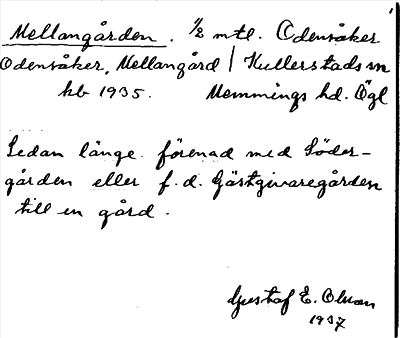 Mellangården. 1/2 mtl. Odensåker
Odensåker, Mellangård | Kullerstads sn
kb 1935. Memmings hd. Ögl
Sedan länge förenad med Söder-
gården eller f.d. Gästgivaregården
till en gård.
Gustaf E. Olsson
1937